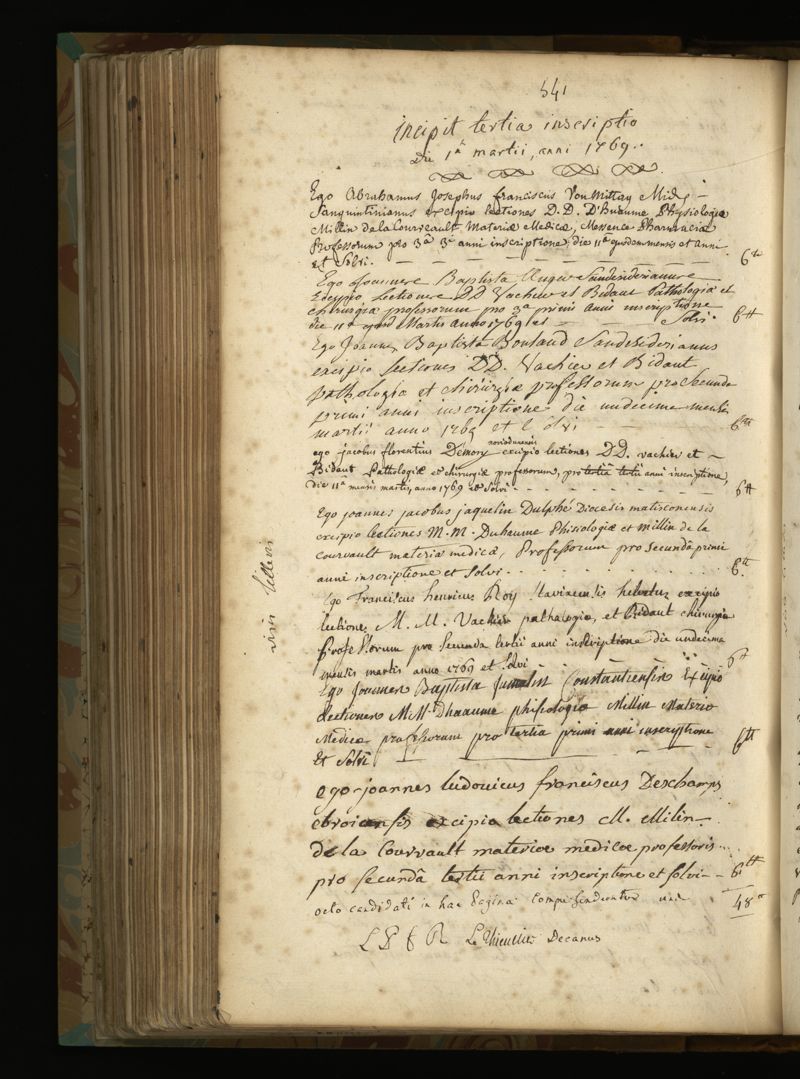 541
incipit tertia inscriptio
Die 1ª martii, anni 1769..
Ego Abrahamus Josephus franciscus VonMittag
Sanquintinianus excipio lectiones D.D. D'huaume Physiologiæ
Millin de la Courveault, Materiæ Medicæ, Messence Pharmaciæ
Professorum pro 3ª 3ⁱ anni inscriptione, die 11ª ejusdem mensis et anni
et Solvi. 6tt
Ego Joannes Baptista Sandesiderianus
Excipio Lectiones DD Vachier et Bidaut Pathologiæ et
chirurgiæ professorum pro 3ª primi anni inscriptione
die 11ª Martis anno 1769 et Solvi. 6tt
Ego Joannes Baptista Sandesiderianus
excipio Lectiones DD. Vachier et Bidaut
pathologiæ et chirurgiæ professorum pro secunda
primi anni inscriptione die undecima mensis
martii anno 1769 et solvi 6tt
noviodunensis
ego jacobus florentius Demory excipio lectiones DD. vachier et
Bidaut Pathologiæ et chirurgiæ professorum, pro tertiâ anni inscriptione,
die 11ª mensis martis, anno 1769 et Solvi. 6tt
Ego joannes jacobus jaquelin Dulphé Diocesis matisconensis
excipio lectiones M.M. Duhaume Phisiologiæ et Millin de la
Courvault materiæ medicæ, Professorum pro secundâ primi
anni inscriptione et Solvi. 6tt
Ego Franciscus henricus Roy helvetus excipio
lectiones M. M. Vachier pathalogiæ, et Bidaut chirurgiæ
Professorum pro Secunda tertii anni inscriptione die undecima
mensis martis anno 1769 et Solvi 6tt
Ego Joannes Baptista Constantiensis Excipio
Lectiones M.M. Dhaaume phisiologiæ Millin Materiæ
Medicæ professorum pro tertia primi anni inscryptione
Et Solvi 6tt
ego joannes ludovicus franciscus Deschamps
ebroicensis excipio lectiones M. Milin
de la Courvault materiæ medicæ professoris
pro secundâ tertii anni inscriptione et solvi 6tt
octo candidati in hac pagina comprehenduntur 48
Le Thieullier Decanus